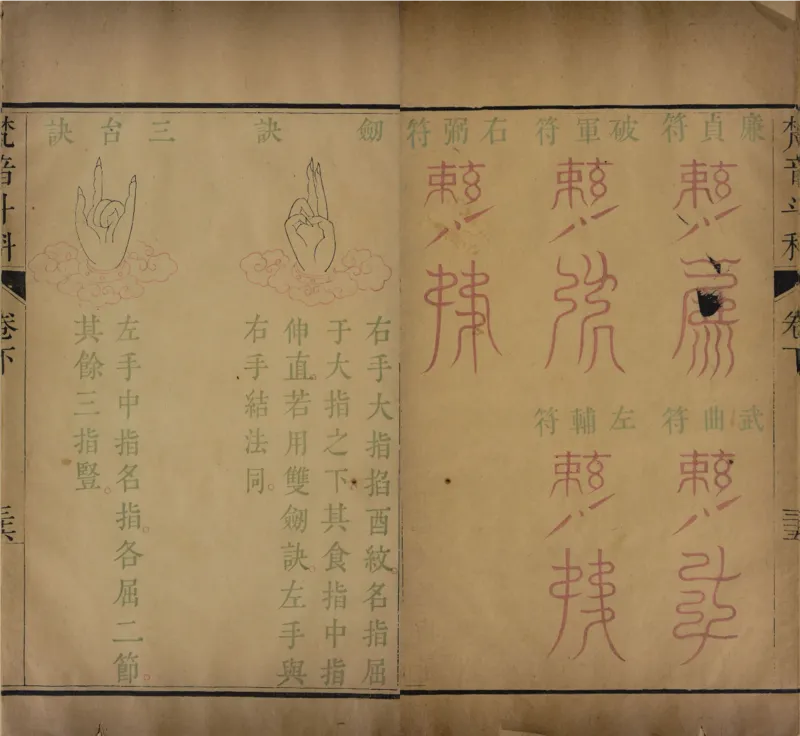 梵音斗科
卷下
三五
廉貞符
破軍符
右弼符
武曲符
左輔符
劒訣
右手大指掐酉紋。名指屈
于大指之下。其食指中指
伸直。若用雙劒訣。左手與
右手結法同。
三台訣
左手中指名指。各屈二節。
其餘三指豎。
梵音斗科
卷下
三六